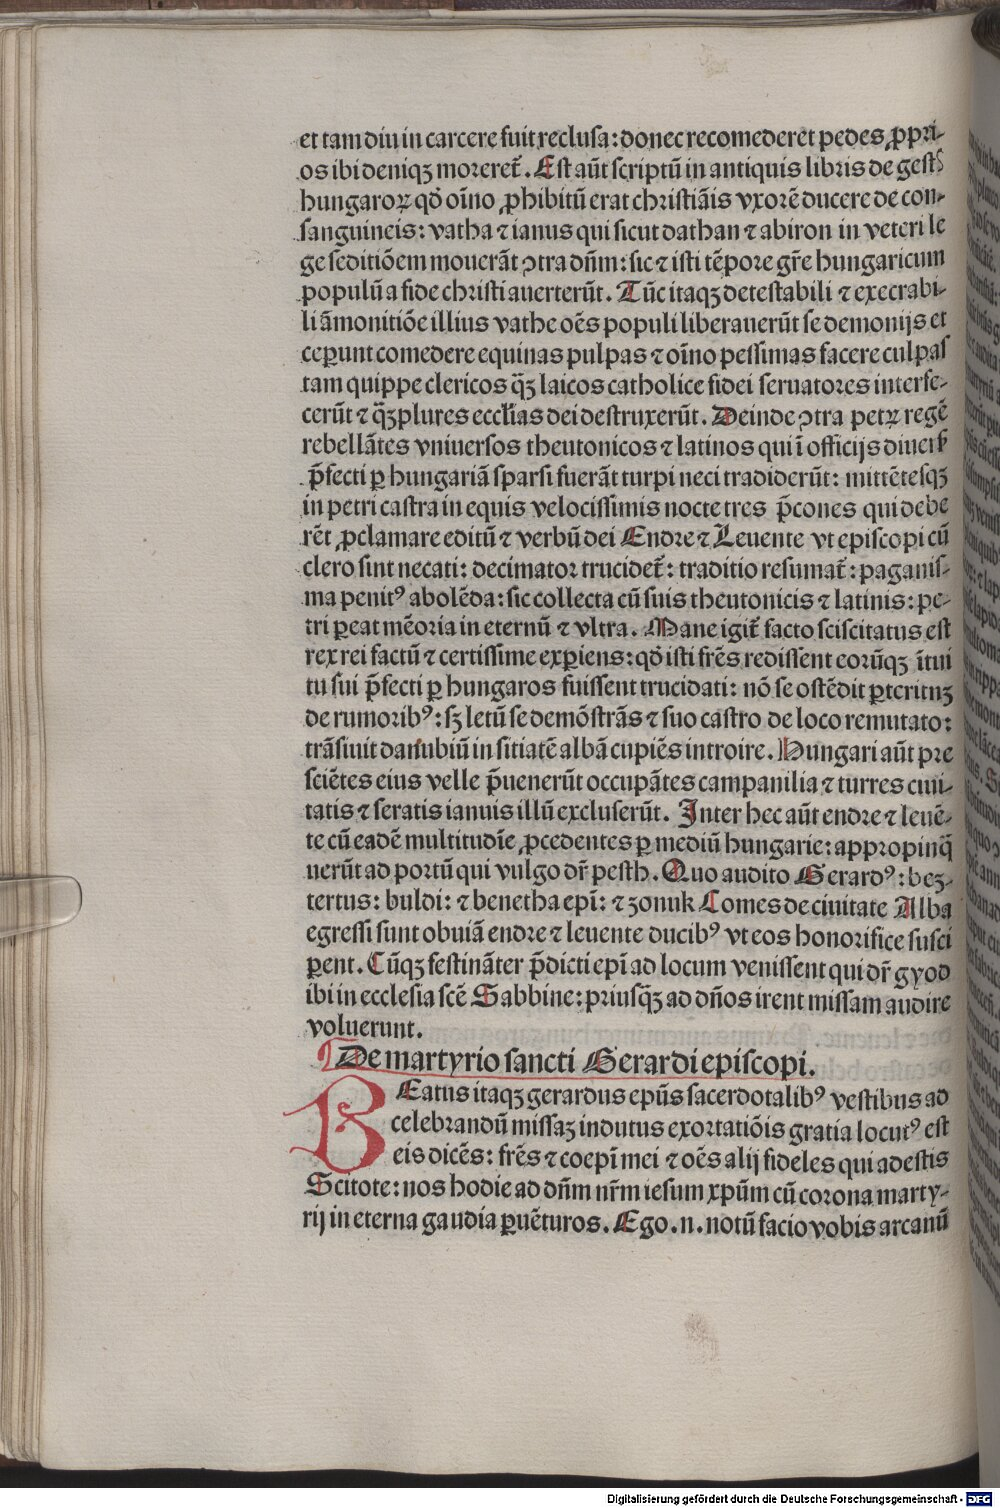 et tam diu in carcere fuit reclusa: donec recomederet pedes ꝓpri-
os ibi deniqꝫ moreret̄. Est aūt scriptū in antiquis libris de gestꝭ
hungaroꝝ qd̄ oīno ꝓhibitū erat christiāis vxorē ducere de con-
sanguineis: vatha ⁊ ianus qui sicut dathan ⁊ abiron in veteri le
ge seditiōem mouerāt ꝯtra dn̄m: sic ⁊ isti tēpore gr̄e hungaricum
populū a fide christi auerterūt. Tūc itaqꝫ detestabili ⁊ execrabi-
li āmonitiōe illius vathe oēs populi liberauerūt se demonijs et
ceꝑunt comedere equinas pulpas ⁊ oīno pessimas facere culpas
tam quippe clericos qꝫ̄ laicos catholice fidei seruatores interfe-
cerūt ⁊ qꝫ̄plures eccl̄ias dei destruxerūt. Deinde ꝯtra petꝝ regē
rebellātes vniuersos theutonicos ⁊ latinos qui ī officijs diuers̄
p̄fecti ꝑ hungariā sparsi fuerāt turpi neci tradiderūt: mittētesqꝫ
in petri castra in equis velocissimis nocte tres p̄cones qui debe
rēt ꝓclamare editū ⁊ verbū dei Endre ⁊ Leuente vt episcopi cū
clero sint necati: decimator trucidet̄: traditio resumat̄: paganis-
ma penitꝰ abolēda: sic collecta cū suis theutonicis ⁊ latinis: pe-
tri ꝑeat mēoria in eternū ⁊ vltra. Mane igit̄ facto sciscitatus est
rex rei factū ⁊ certissime exꝑiens: qd̄ isti fr̄es redissent eorūqꝫ ītui
tu sui p̄fecti ꝑ hungaros fuissent trucidati: nō se ostēdit ꝑteritnꝫ
de rumoribꝰ: sꝫ letū se demōstrās ⁊ suo castro de loco remutato:
trāsiuit danubiū in sitiatē albā cupiēs introire. Hungari aūt pre
sciētes eius velle p̄uenerūt occupātes campanilia ⁊ turres ciui-
tatis ⁊ seratis ianuis illū excluserūt. Inter hec aūt endre ⁊ leuē-
te cū eadē multitudīe ꝓcedentes ꝑ mediū hungarie: appropinq̄
uerūt ad portū qui vulgo dr̄ pesth. Quo audito Gerardꝰ: beꝫ-
tertus: buldi: ⁊ benetha epī: ⁊ zonuk Comes de ciuitate Alba
egressi sunt obuiā endre ⁊ leuente ducibꝰ vt eos honorifice susci
ꝑent. Cūqꝫ festināter p̄dicti epī ad locum venissent qui dr̄ gyod
ibi in ecclesia scē Sabbine: priusqꝫ̄ ad dn̄os irent missam audire
voluerunt.
¶ De martyrio sancti Gerardi episcopi.
BEatus itaqꝫ gerardus epūs sacerdotalibꝰ vestibus ad
celebrandū missaꝫ indutus exortatiōis gratia locutꝰ est
eis dicēs: fr̄es ⁊ coepī mei ⁊ oēs alij fideles qui adestis
Scitote: nos hodie ad dn̄m nr̄m iesum xpūm cū corona marty-
rij in eterna gaudia ꝑuēturos. Ego .n. notū facio vobis arcanū
Digitalisierung gefördert durch die Deutsche Forschungsgemeinschaft - DFG